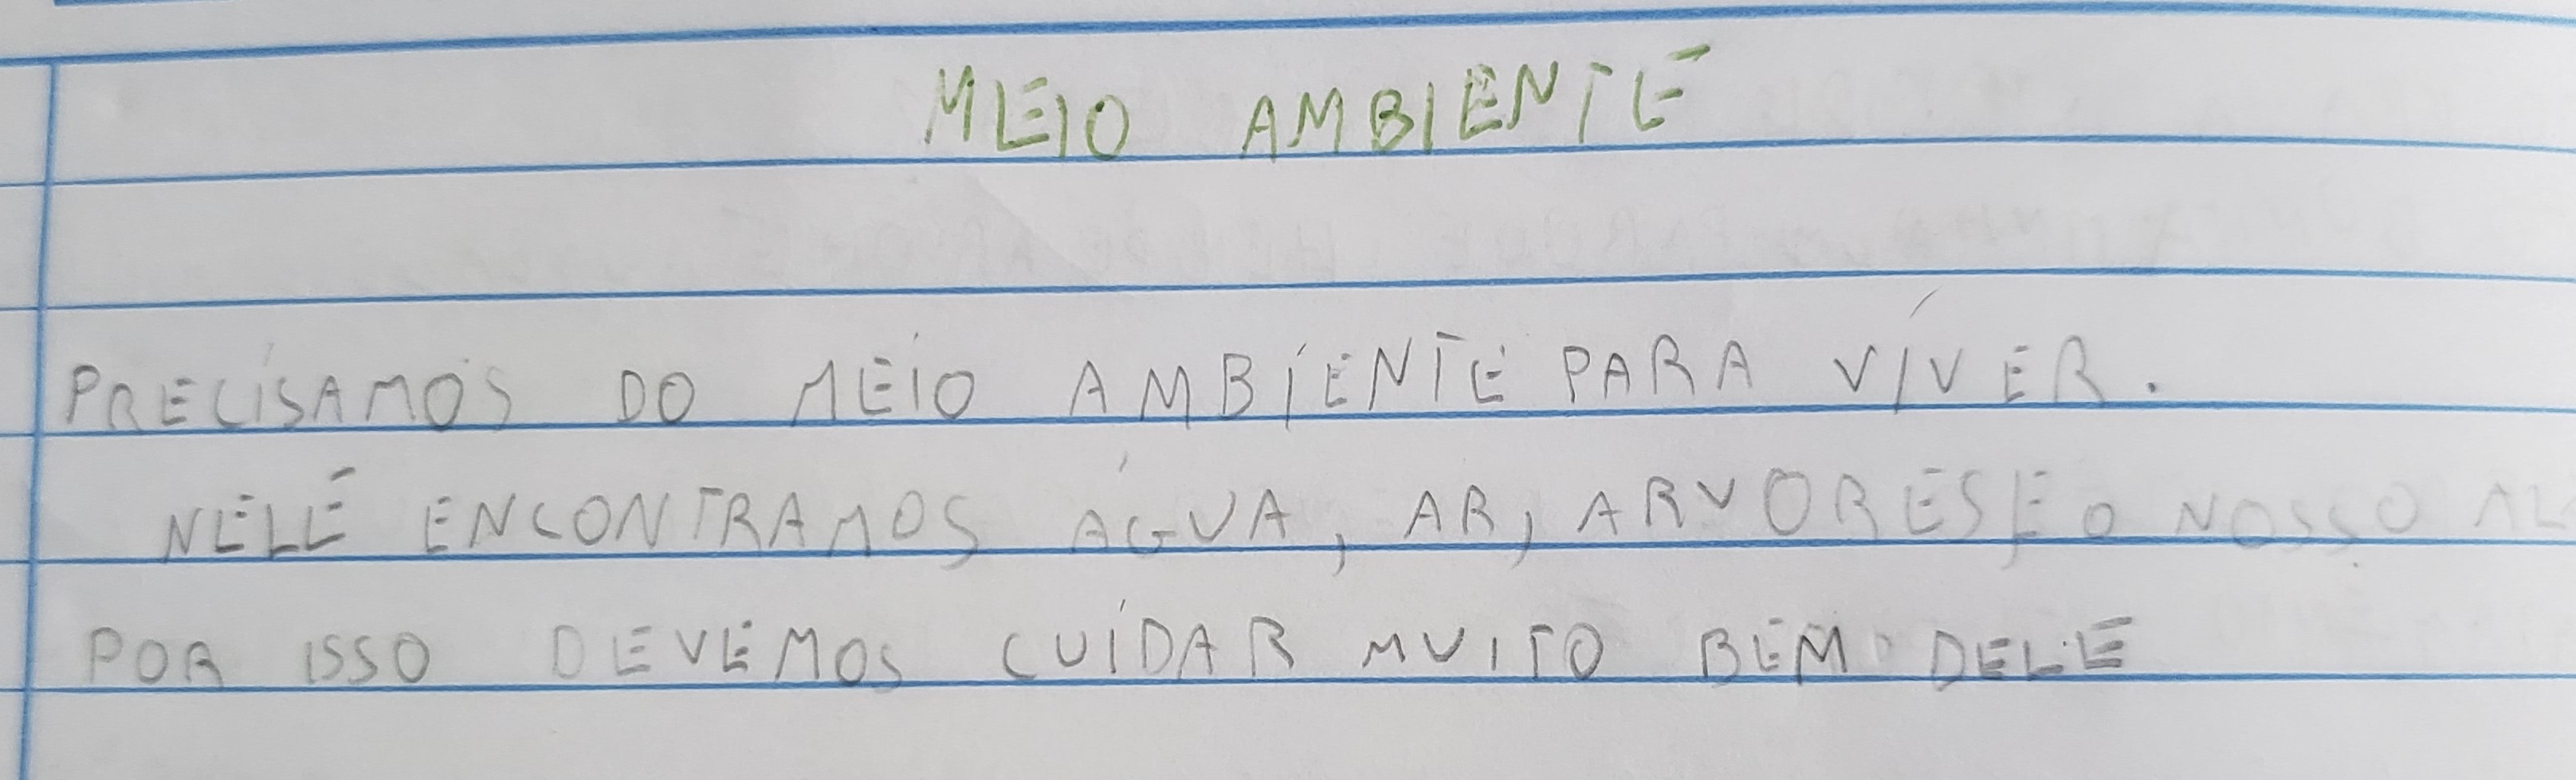 MEIO AMBIENTE
PRECISAMOS DO MEIO AMBIENTE PARA VIVER.
NELE ENCONTRAMOS ÁGUA, AR, ARVORES E O NOSSO AL
POR ISSO DEVEMOS CUIDAR MUITO BEM DELE